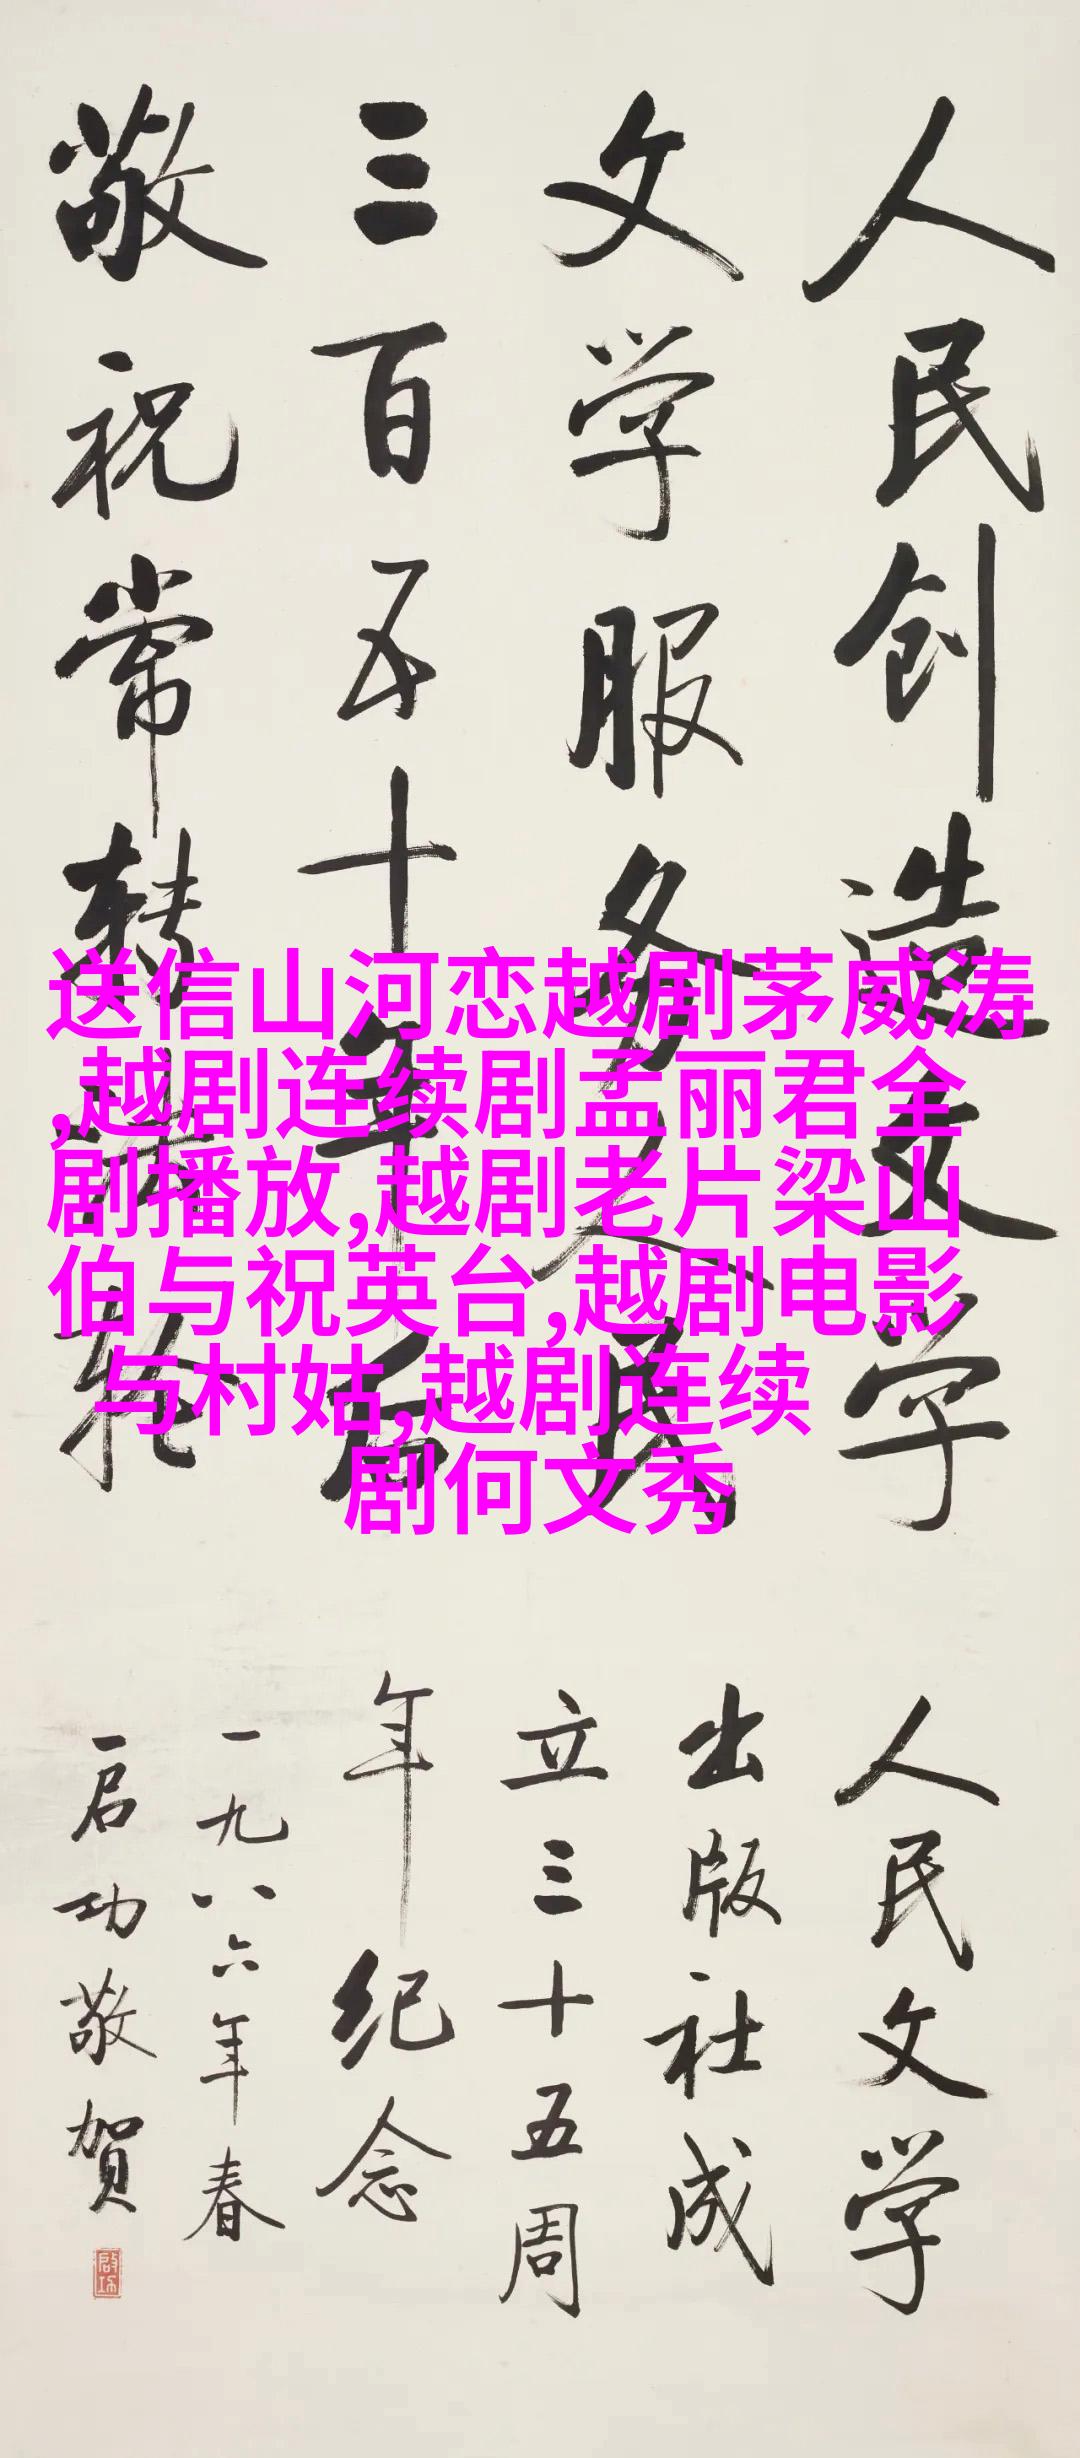 人民创造文学
文学服务人民
三百五十年后
敬祝常转法轮
送信山河恋越剧茅威涛
,越剧连续剧孟丽君全
剧播放,越剧老片梁山
伯与祝英台,越剧电影
与村姑,越剧连续
剧何文秀
人民文学
出版社成
立三十五周
年纪念
一九八六年春
启功敬贺
启功